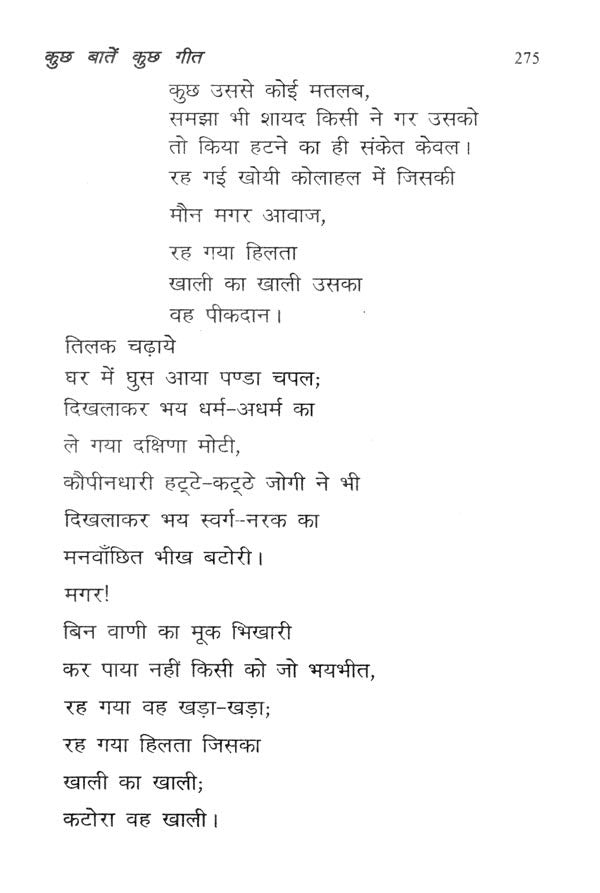 कुछ बातें कुछ गीत 275
कुछ उससे कोई मतलब,
समझा भी शायद किसी ने गर उसको
तो किया हटने का ही संकेत केवल।
रह गई खोयी कोलाहल में जिसकी
मौन मगर आवाज,
रह गया हिलता
खाली का खाली उसका
वह पीकदान।
तिलक चढ़ाये
घर में घुस आया पण्डा चपल;
दिखलाकर भय धर्म-अधर्म का
ले गया दक्षिणा मोटी,
कौपीनधारी हट्टे-कट्ठे जोगी ने भी
दिखलाकर भय स्वर्ग-नरक का
मनवाँछित भीख बटोरी।
मगर!
बिन वाणी का मूक भिखारी
कर पाया नहीं किसी को जो भयभीत,
रह गया वह खड़ा-खड़ा;
रह गया हिलता जिसका
खाली का खाली;
कटोरा वह खाली।